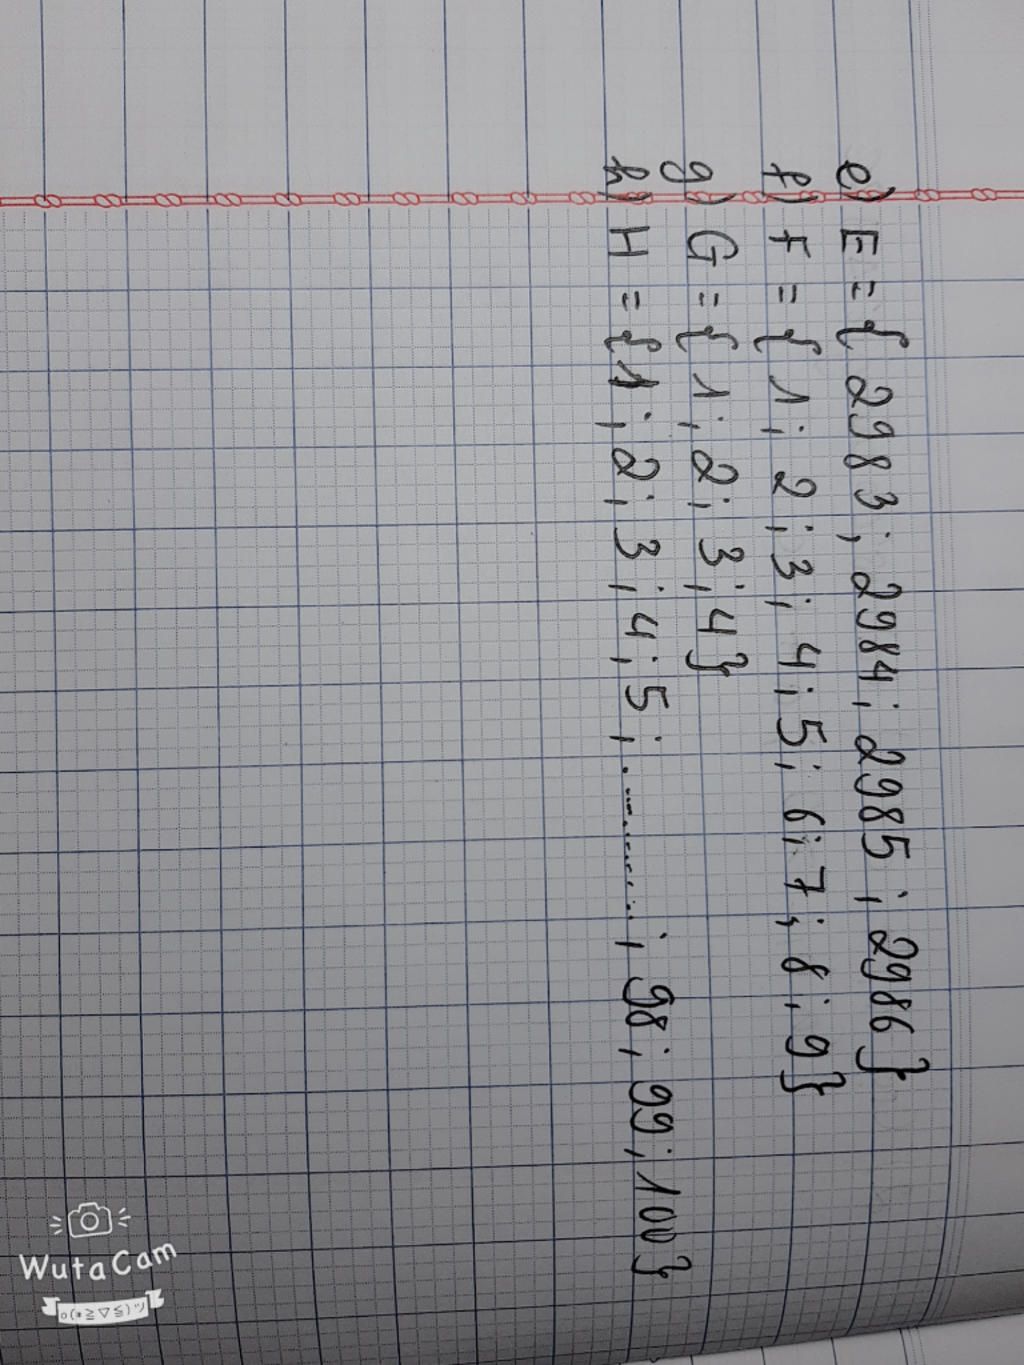 e) E = { 2983 ; 2984 ; 2985 ; 2986 }
f) F = { 1 ; 2 ; 3 ; 4 ; 5 ; 6 ; 7 ; 8 ; 9 }
g) G = { 1 ; 2 ; 3 ; 4 }
h) H = { 1 ; 2 ; 3 ; 4 ; 5 ; ............ ; 98 ; 99 ; 100 }
WutaCam